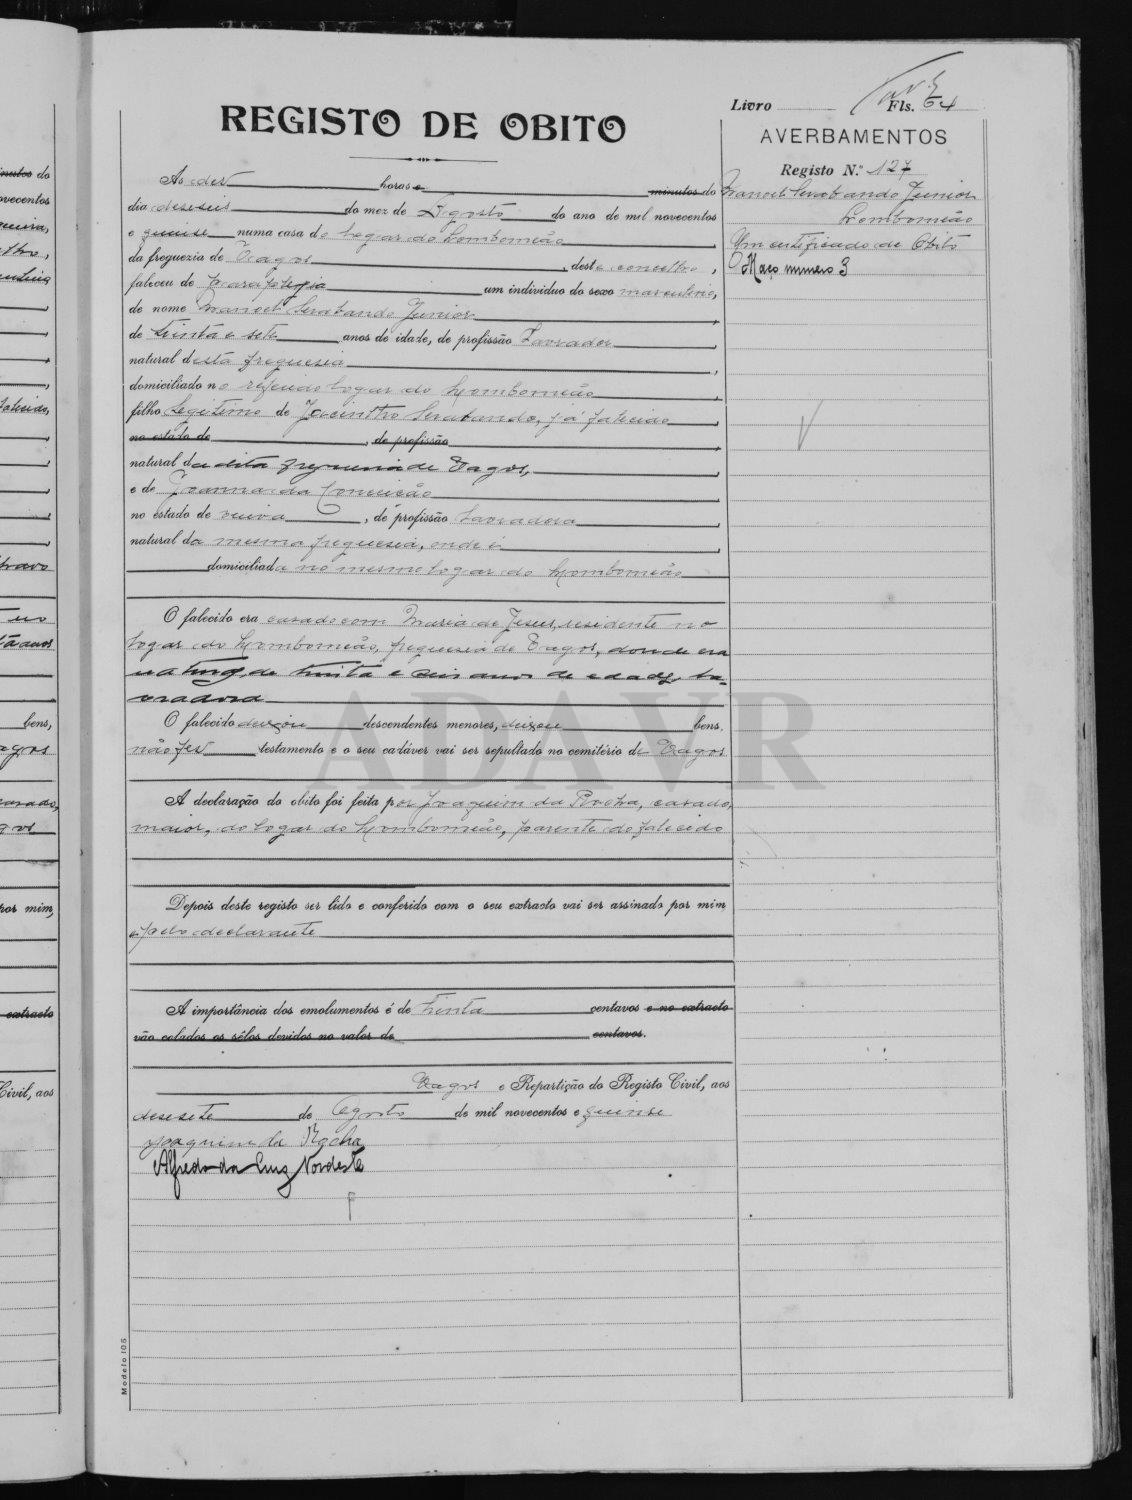 Livro Fls. 64
REGISTO DE OBITO
AVERBAMENTOS
Registo N.º 127
Manoel Serabando Junior
Lombomeão
Um certificado de Obito
Maço numero 3
Ás dez horas e minutos do
dia deseseis do mez de Agosto do ano de mil novecentos
e quinse numa casa do logar do Lombomeão
da freguezia de Vagos, deste concelho,
faleceu de um individuo do sexo masculino,
de nome Manoel Serabando Junior,
de trinta e sete anos de idade, de profissão Lavrador,
natural desta freguesia,
domiciliado no referido logar do Lombomeão,
filho legitimo de Jacintho Serabando, já falecido,
no estado de, de profissão
natural da dita freguesia de Vagos,
e de Joanna da Conceição
no estado de viuva, de profissão Lavradora,
natural da mesma freguesia, onde é
domiciliada no mesmo logar do Lombomeão
O falecido era casado com Maria de Jesus, residente no
logar do Lombomeão, freguesia de Vagos, donde era
natural, de trinta e seis anos de edade, la-
vradora
O falecido deixou descendentes menores, deixou bens.
não fez testamento e o seu cadáver vai ser sepultado no cemitério de Vagos
A declaração do obito foi feita por Joaquim da Rocha, casado,
maior, do logar do Lombomeão, parente do falecido
Depois deste registo ser lido e conferido com o seu extracto vai ser assinado por mim
e pelo declarante
A importância dos emolumentos é de trinta centavos e no extracto
vão colados os sêlos devidos no valor de centavos.
Vagos e Repartição do Registo Civil, aos
desesete de Agosto de mil novecentos e quinse
Joaquim da Rocha
Alfredo da Luz Nordeste
Modelo 105
ADAVR